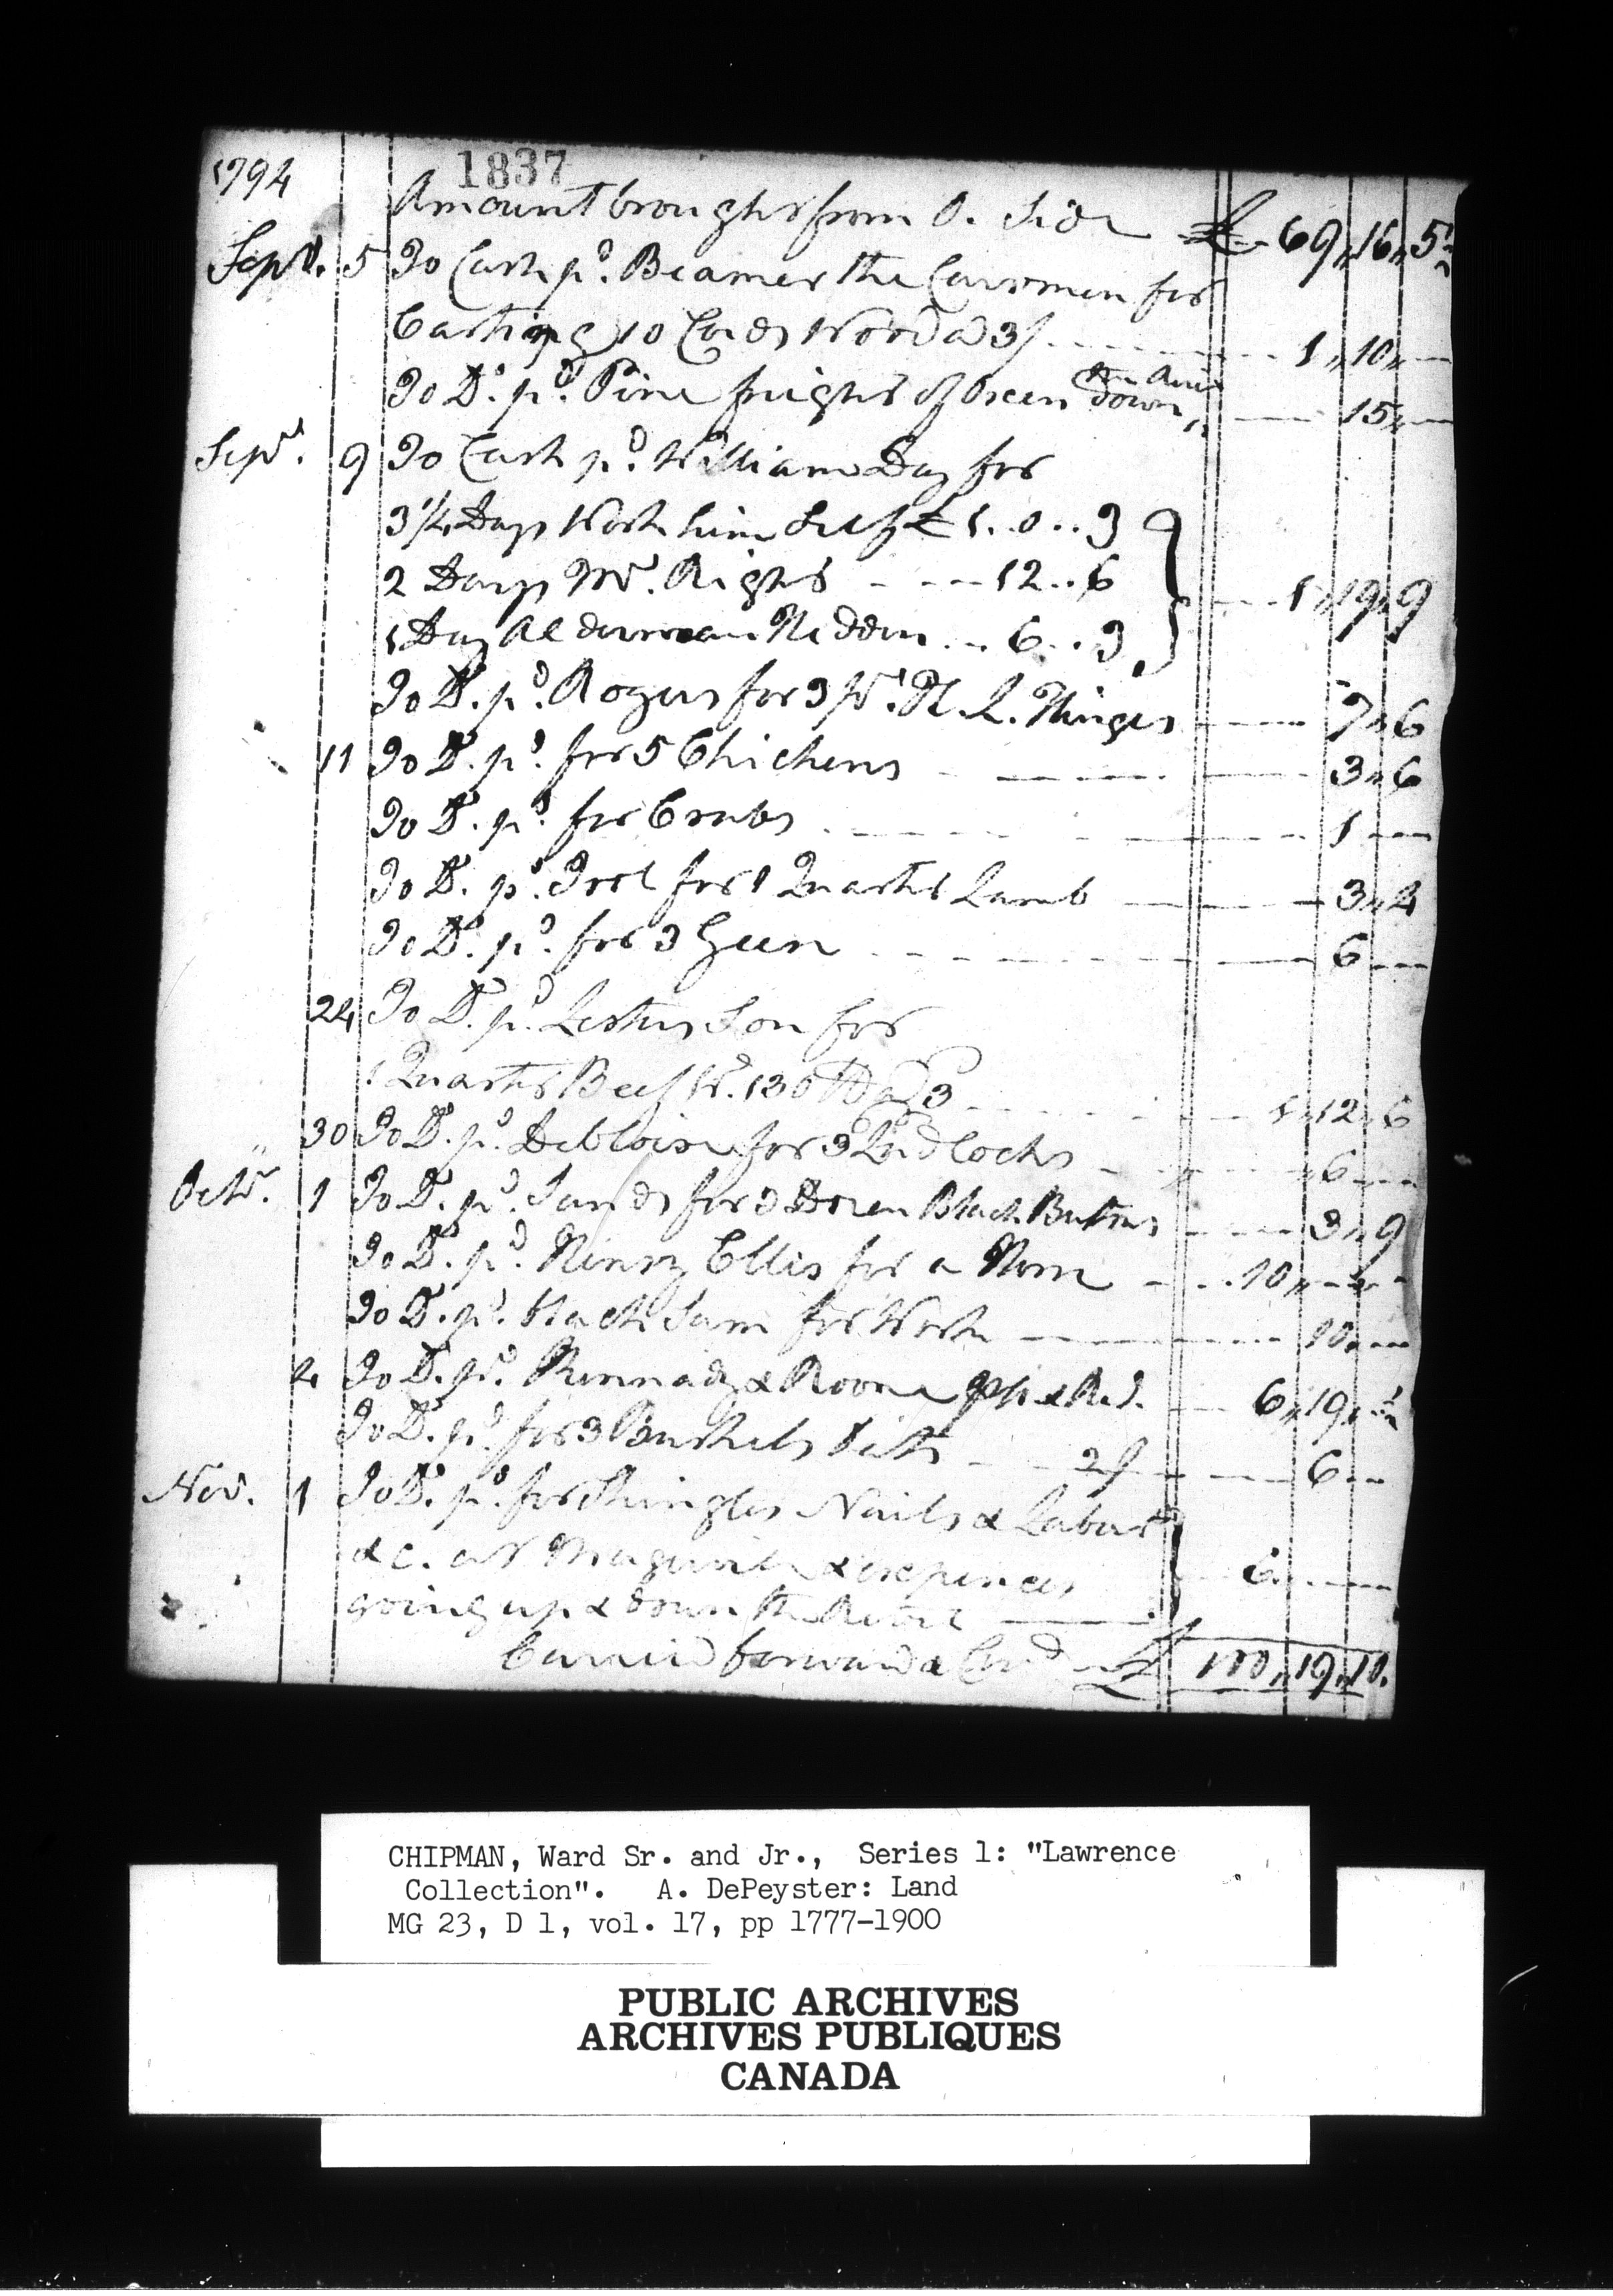 1837
1794 Amount brought from O. Side £ 69,, 16,, 5½
Sepr. 5 To Cash pd. Beamer the Carrman for
Carting 10 Cords Wood @ 3/ 1,, 10,,
To Do. pd. Pine freight of Oxen down,, 15,,
Sepr. 9 To Cash pd. William Day for
3 1/4 Days Work him Self £ 1 .. 0 .. 3
2 Days Mr. Right 12 .. 6 1,, 19,, 9
1 Day Alderman Hedden 6 .. 3
To Do. pd. Rogers for 3 pr. H. L. Hinges 7,, 6
11 To Do. pd. for 5 Chickens 3,, 6
To Do. pd. for 1
To Do. pd. for 1 Quarter Lamb 3,, 4
To Do. pd. for 3 Geese 6
24 To Do. pd. Lesters Son for
1 Quarter Beef Wt. 130 lb @ 3 1,, 12,, 6
30 To Do. pd. Debloise for 3 Padlocks 6
Octr. 1 To Do. pd. Sands for 3 Dozen Black Buttons 3,, 9
To Do. pd. Henry Ellis for a Horse 10,,
To Do. pd. Black Sam for Work 10
4 To Do. pd. Kennady & Roome 6,, 19,,
To Do. pd. for 3 Bushels 2/ 6
Nov. 1 To Do. pd. for Shingles Nails & Labour
&c. at Maugerville & expences 6
going up & down the River
Carried forward & Cred. £ 100,, 19,, 10.
CHIPMAN, Ward Sr. and Jr., Series 1: "Lawrence
Collection". A. DePeyster: Land
MG 23, D 1, vol. 17, pp 1777-1900
PUBLIC ARCHIVES
ARCHIVES PUBLIQUES
CANADA